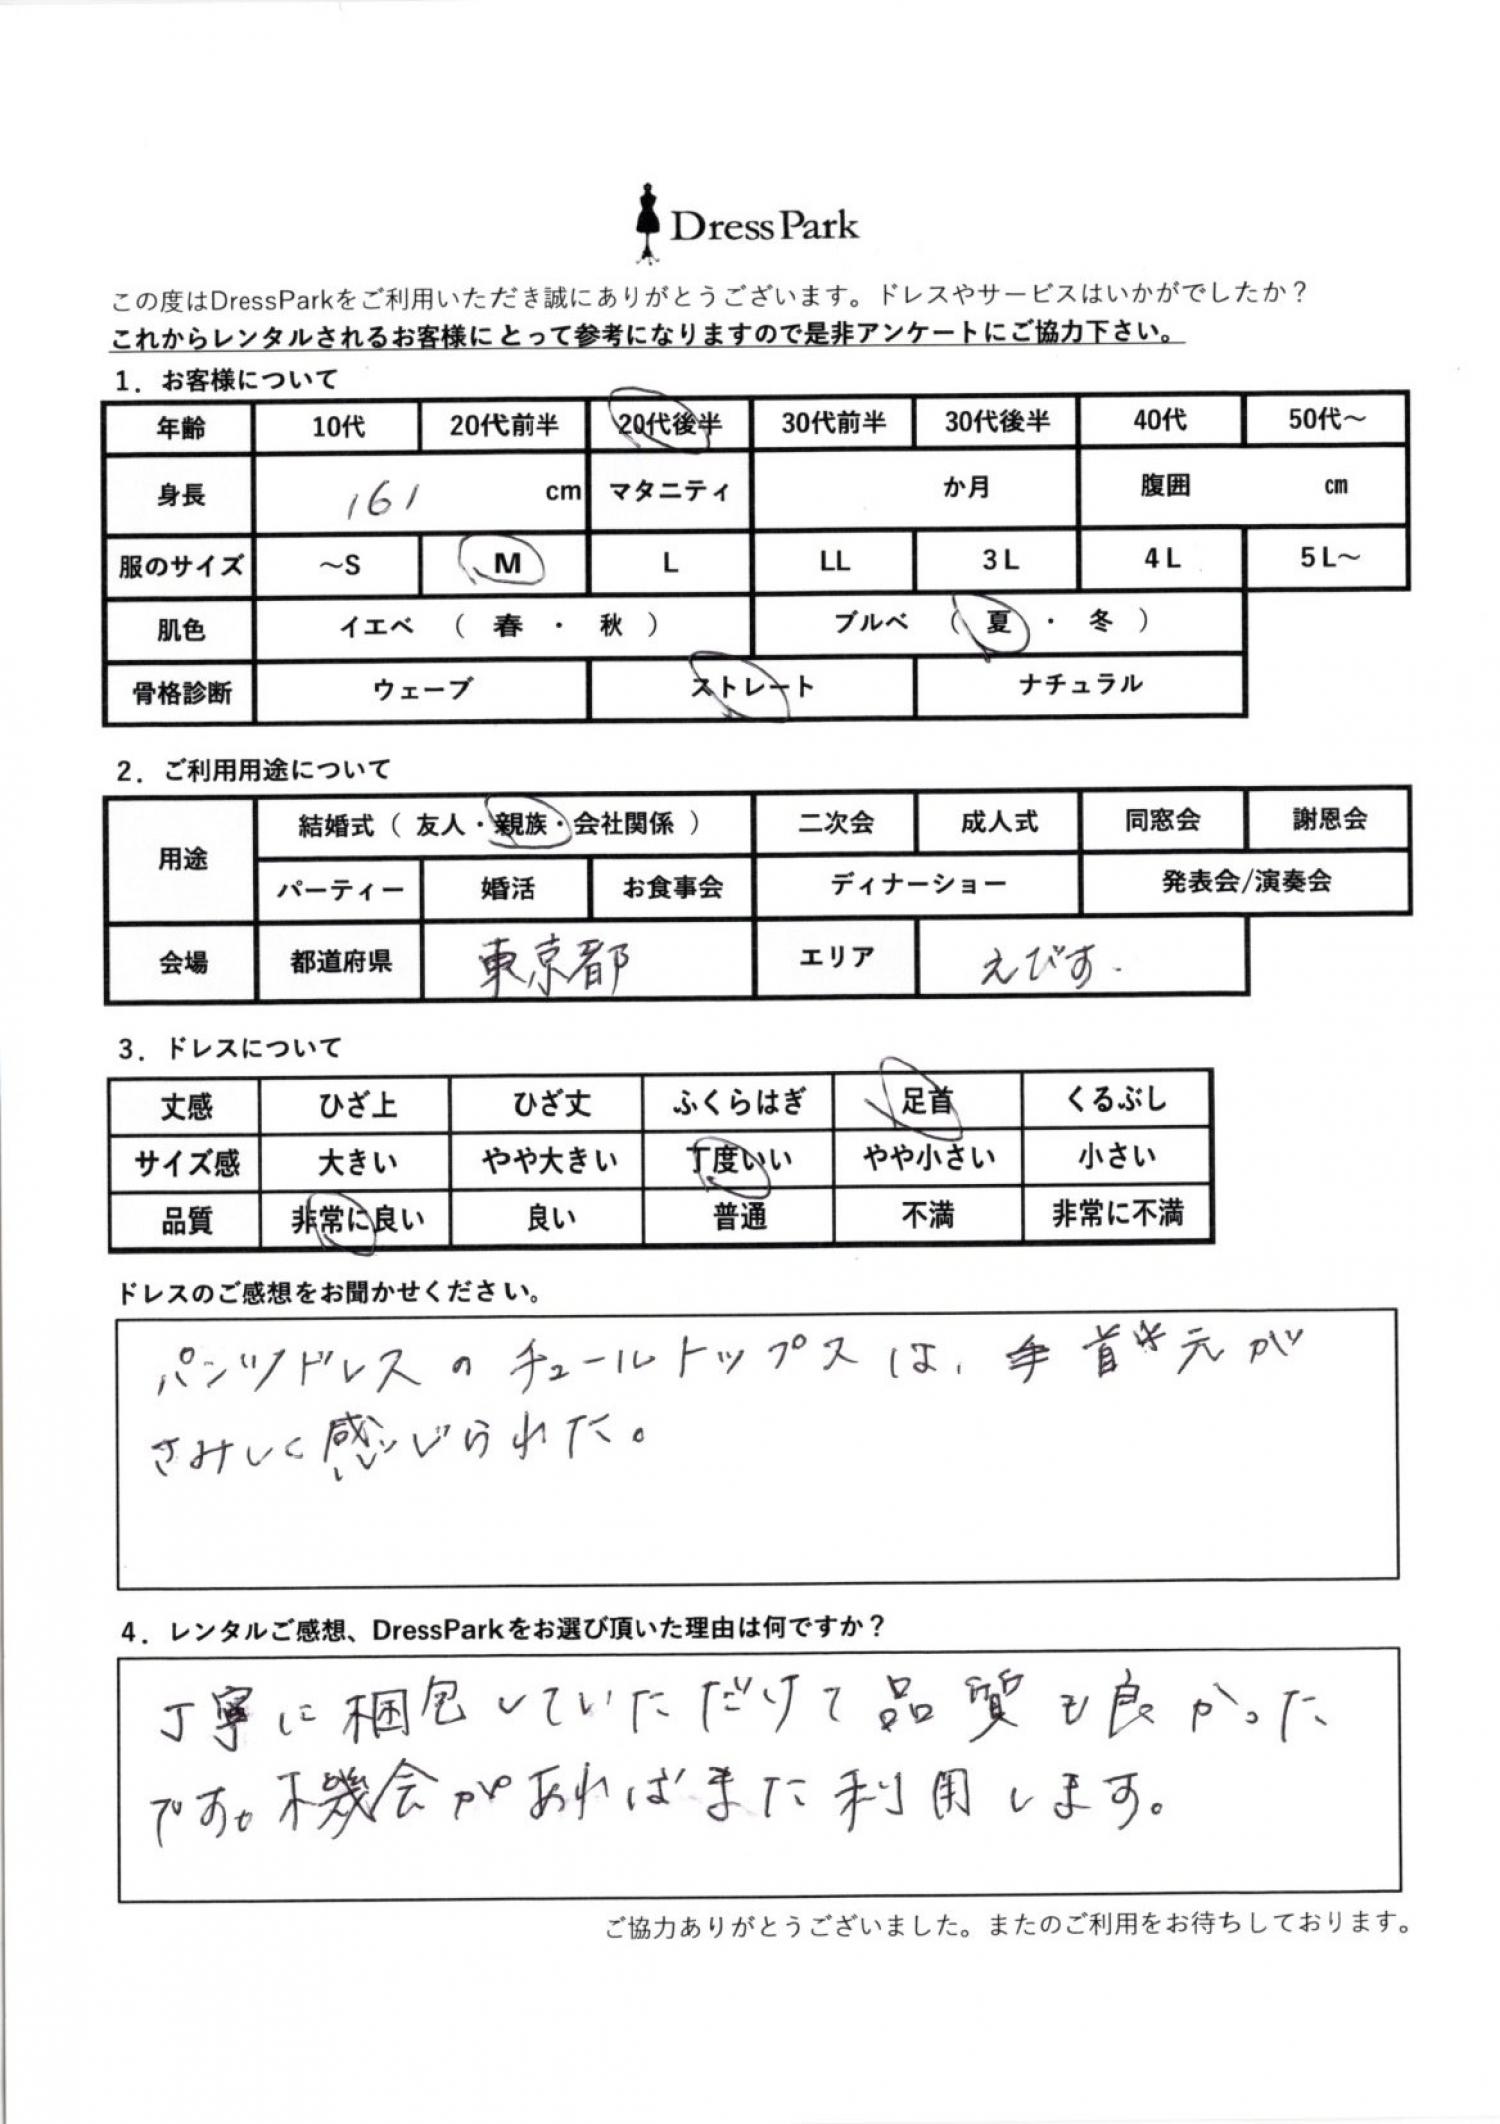 DressPark
この度はDressParkをご利用いただき誠にありがとうございます。ドレスやサービスはいかがでしたか？
これからレンタルされるお客様にとって参考になりますので是非アンケートにご協力下さい。
1．お客様について
年齢 10代 20代前半 20代後半 30代前半 30代後半 40代 50代～
身長 161 cm マタニティ か月 腹囲 cm
服のサイズ ～S M L LL 3L 4L 5L～
肌色 イエベ （ 春 ・ 秋 ） ブルベ （ 夏 ・ 冬 ）
骨格診断 ウェーブ ストレート ナチュラル
2．ご利用用途について
用途 結婚式（ 友人・親族・会社関係 ） 二次会 成人式 同窓会 謝恩会
パーティー 婚活 お食事会 ディナーショー 発表会/演奏会
会場 都道府県 東京都 エリア えびす.
3．ドレスについて
丈感 ひざ上 ひざ丈 ふくらはぎ 足首 くるぶし
サイズ感 大きい やや大きい 丁度いい やや小さい 小さい
品質 非常に良い 良い 普通 不満 非常に不満
ドレスのご感想をお聞かせください。
パンツドレスのチュールトップスは、首元が
さみしく感じられた。
4．レンタルご感想、DressParkをお選び頂いた理由は何ですか？
丁寧に梱包していただけて品質も良かった
です。機会があればまた利用します。
ご協力ありがとうございました。またのご利用をお待ちしております。